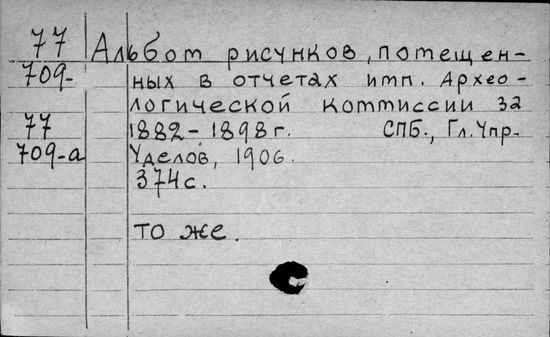 77 Альбом рисунков, помещен-
709- ных в отчетах имп. Архео-
логической коммиссии за
77 1882-1898 г. СПБ., Гл. Упр-
709-а Уделов, 1906.
374 с.
то же.